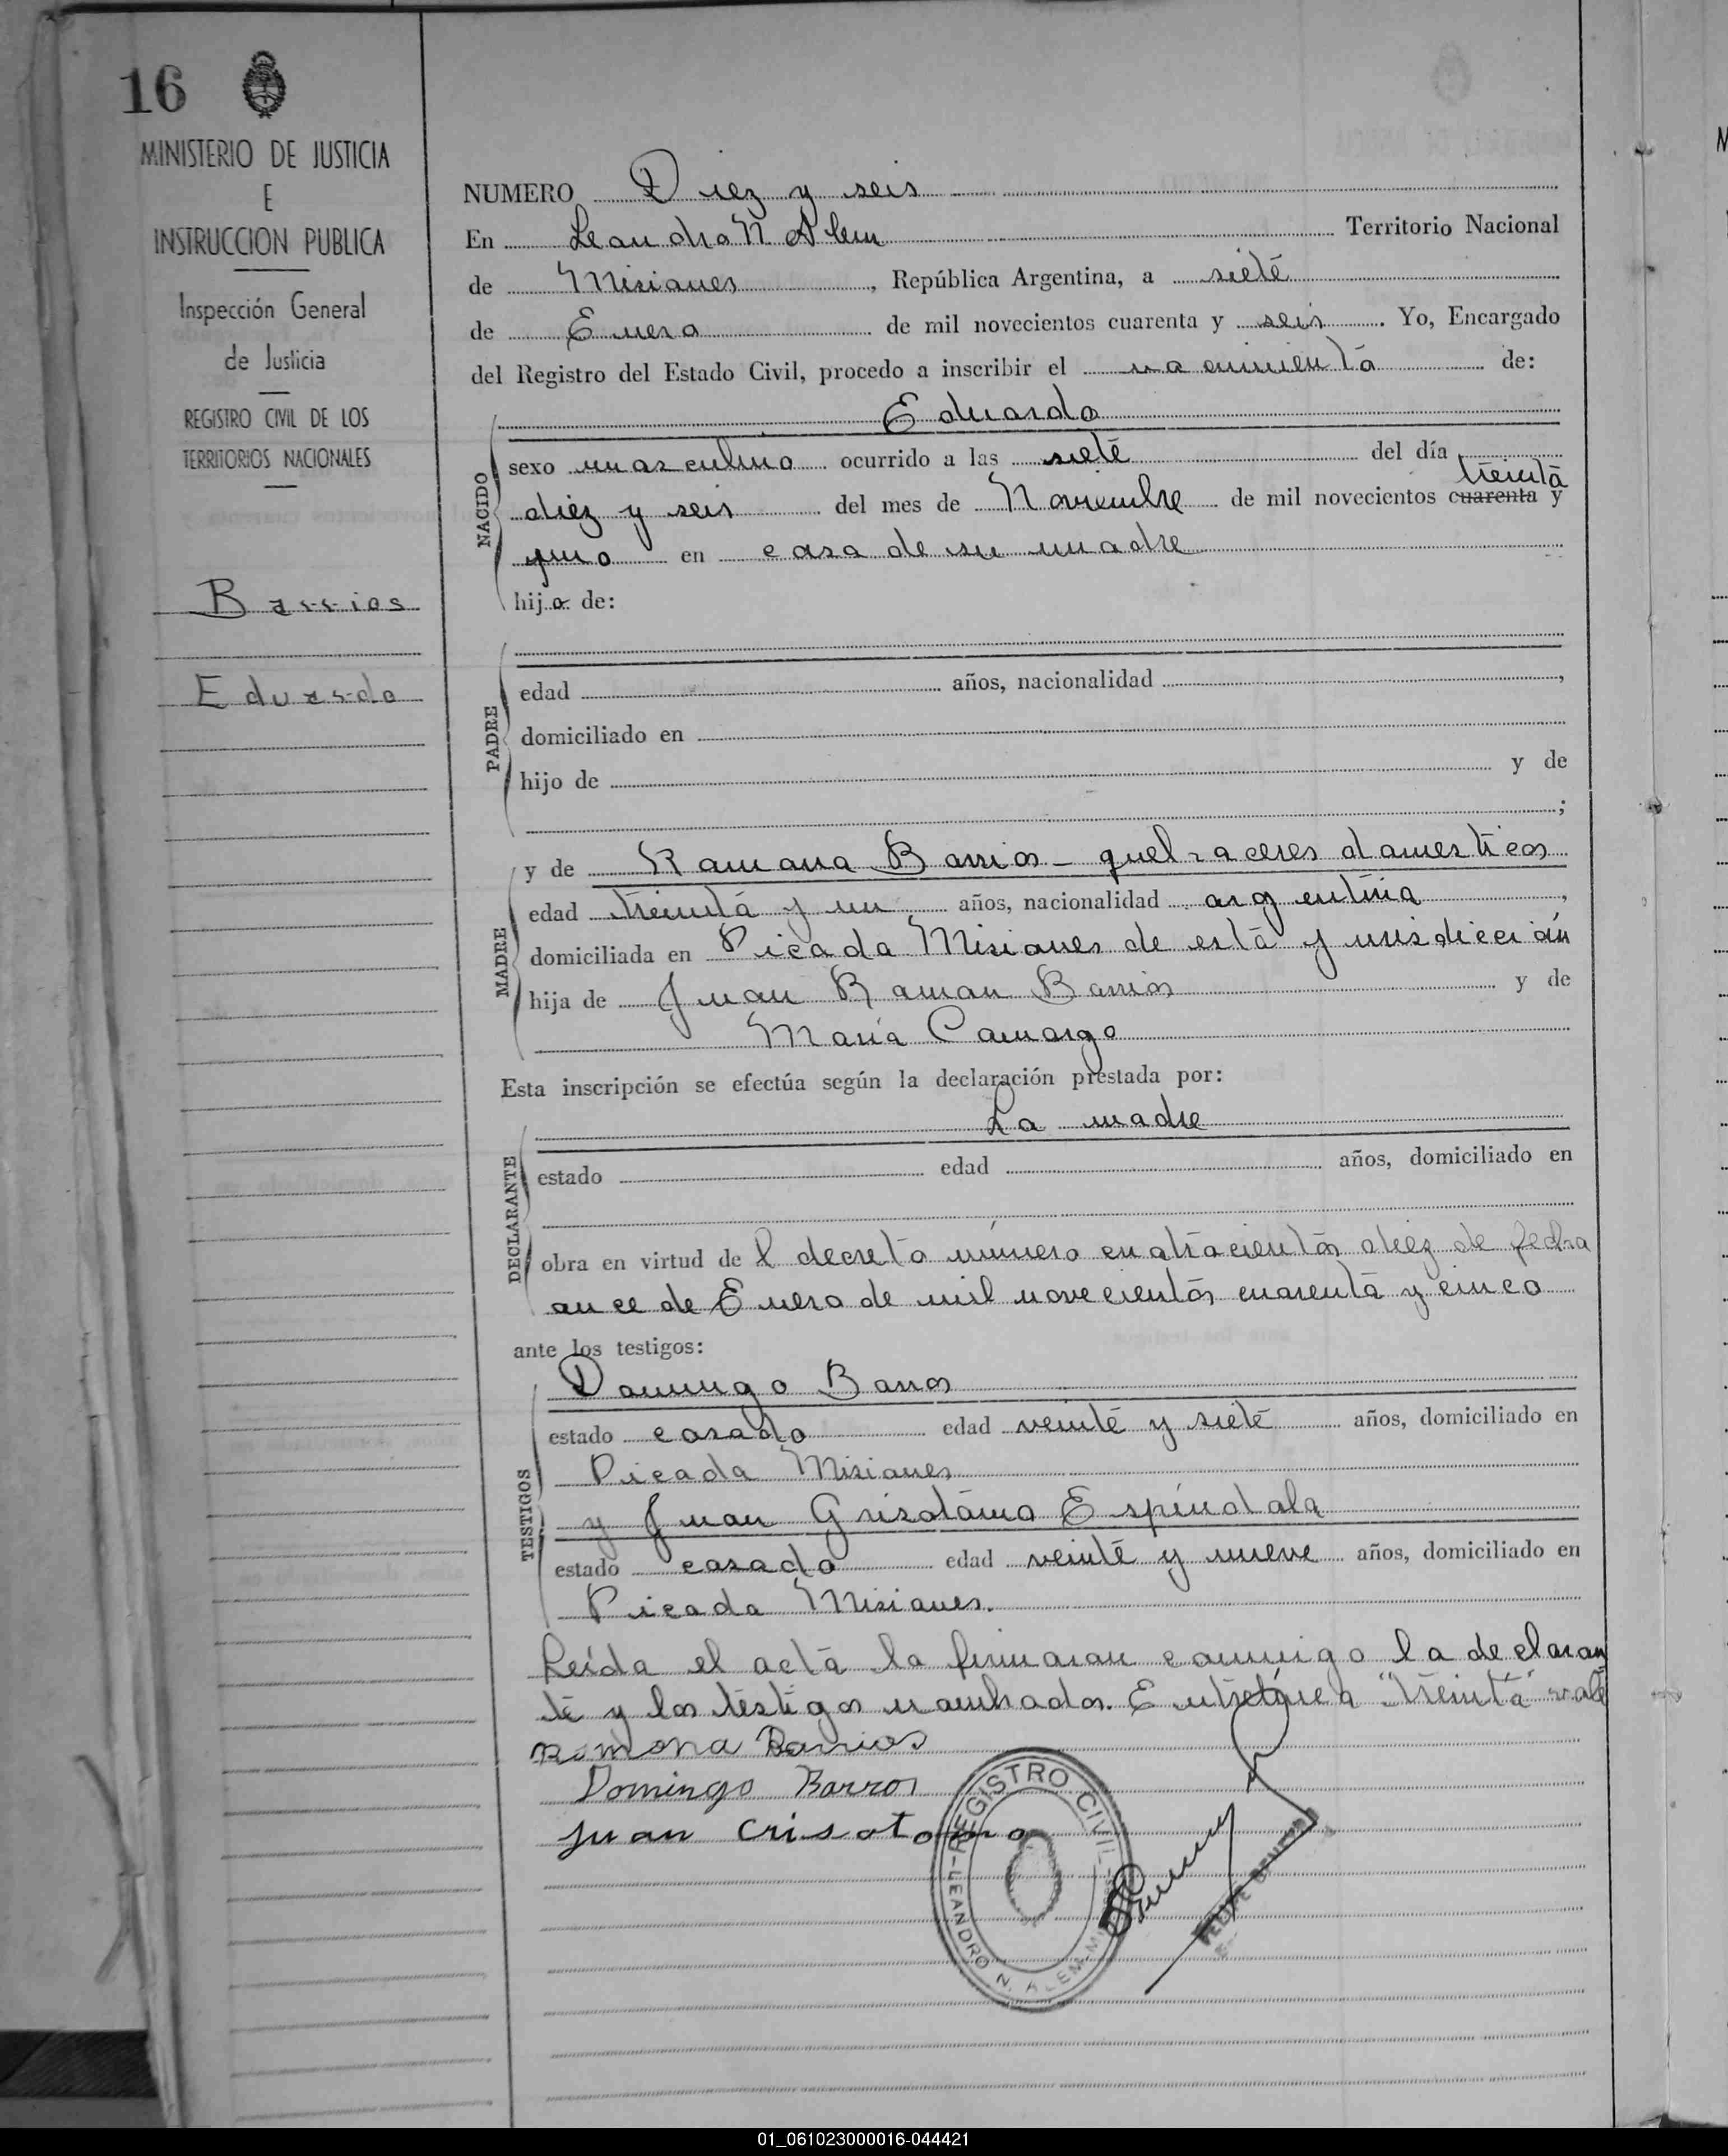 16
MINISTERIO DE JUSTICIA
E
INSTRUCCION PUBLICA
Inspección General
de Justicia
REGISTRO CIVIL DE LOS
TERRITORIOS NACIONALES
Barrios
Eduardo
NUMERO Diez y seis
En Leandro N Alem Territorio Nacional
de Misiones, República Argentina, a siete
de Enero de mil novecientos cuarenta y seis. Yo, Encargado
del Registro del Estado Civil, procedo a inscribir el nacimiento de:
Eduardo
NACIDO
sexo masculino ocurrido a las siete del día
treinta
diez y seis del mes de Noviembre de mil novecientos cuarenta y
uno en casa de su madre
hijo de:
PADRE
edad años, nacionalidad ,
domiciliado en
hijo de y de
;
MADRE
y de Ramona Barrios - quehaceres domesticos
edad treinta y un años, nacionalidad argentina,
domiciliada en Picada Misiones de esta jurisdicción
hija de Juan Ramon Barrios y de
María Camargo
Esta inscripción se efectúa según la declaración prestada por:
La madre
DECLARANTE
estado edad años, domiciliado en
obra en virtud del decreto número cuatrocientos diez de fecha
once de Enero de mil novecientos cuarenta y cinco
ante los testigos:
TESTIGOS
Domingo Barros
estado casado edad veinte y siete años, domiciliado en
Picada Misiones
y Juan Grisotomo Espíndola
estado casado edad veinte y nueve años, domiciliado en
Picada Misiones.
Leída el acta la firmaron conmigo la declaran
te y los testigos nombrados. Entrelinea "treinta" vale
Ramona Barrios
Domingo Barros
Juan Crisotomo
REGISTRO CIVIL
LEANDRO N. ALEM
01_061023000016-044421